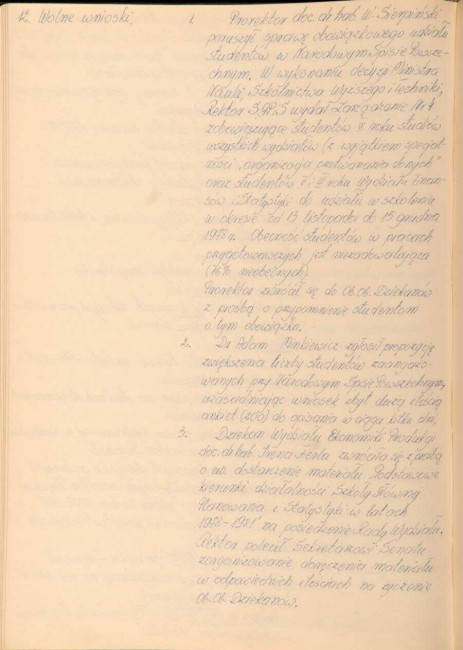 12. Wolne wnioski.
1. Prorektor doc. dr hab. W. Sierpiński
poruszył sprawę obowiązkowego udziału
studentów w Narodowym Spisie Powsze-
chnym. W wykonaniu decyzji Ministra
Nauki, Szkolnictwa Wyższego i Techniki,
Rektor SGPiS wydał Zarządzenie Nr 4
zobowiązujące studentów II roku studiów
wszystkich wydziałów (z wyjątkiem specjal-
ności "organizacja przetwarzania danych"
oraz studentów II i III roku Wydziału Finan-
sów i Statystyki do udziału w szkoleniu
w okresie od 13 listopada do 15 grudnia
1978 r. Obecność studentów w pracach
przygotowawczych jest niezadowalająca
(76% nieobecnych).
Prorektor zwrócił się do Ob. Ob. Dziekanów
z prośbą o przypomnienie studentom
o tym obowiązku.
2. Dr Adam zgłosił propozycję
zwiększenia liczby studentów zaangażo-
wanych przy Narodowym Spisie Powszechnym,
uzasadniając wniosek zbyt dużą ilością
ankiet (200) do opisania w ciągu kilku dni.
3. Dziekan Wydziału Ekonomiki Produkcji
doc. dr hab. Irena zwróciła się z prośbą
o dostarczenie materiału Podstawowe
kierunki działalności Szkoły Głównej
Planowania i Statystyki w latach
1978-1981 na posiedzenie Rady Wydziału.
Rektor polecił Sekretarzowi Senatu
zorganizowanie doręczenia materiału
w odpowiednich ilościach na życzenie
Ob. Ob. Dziekanów.